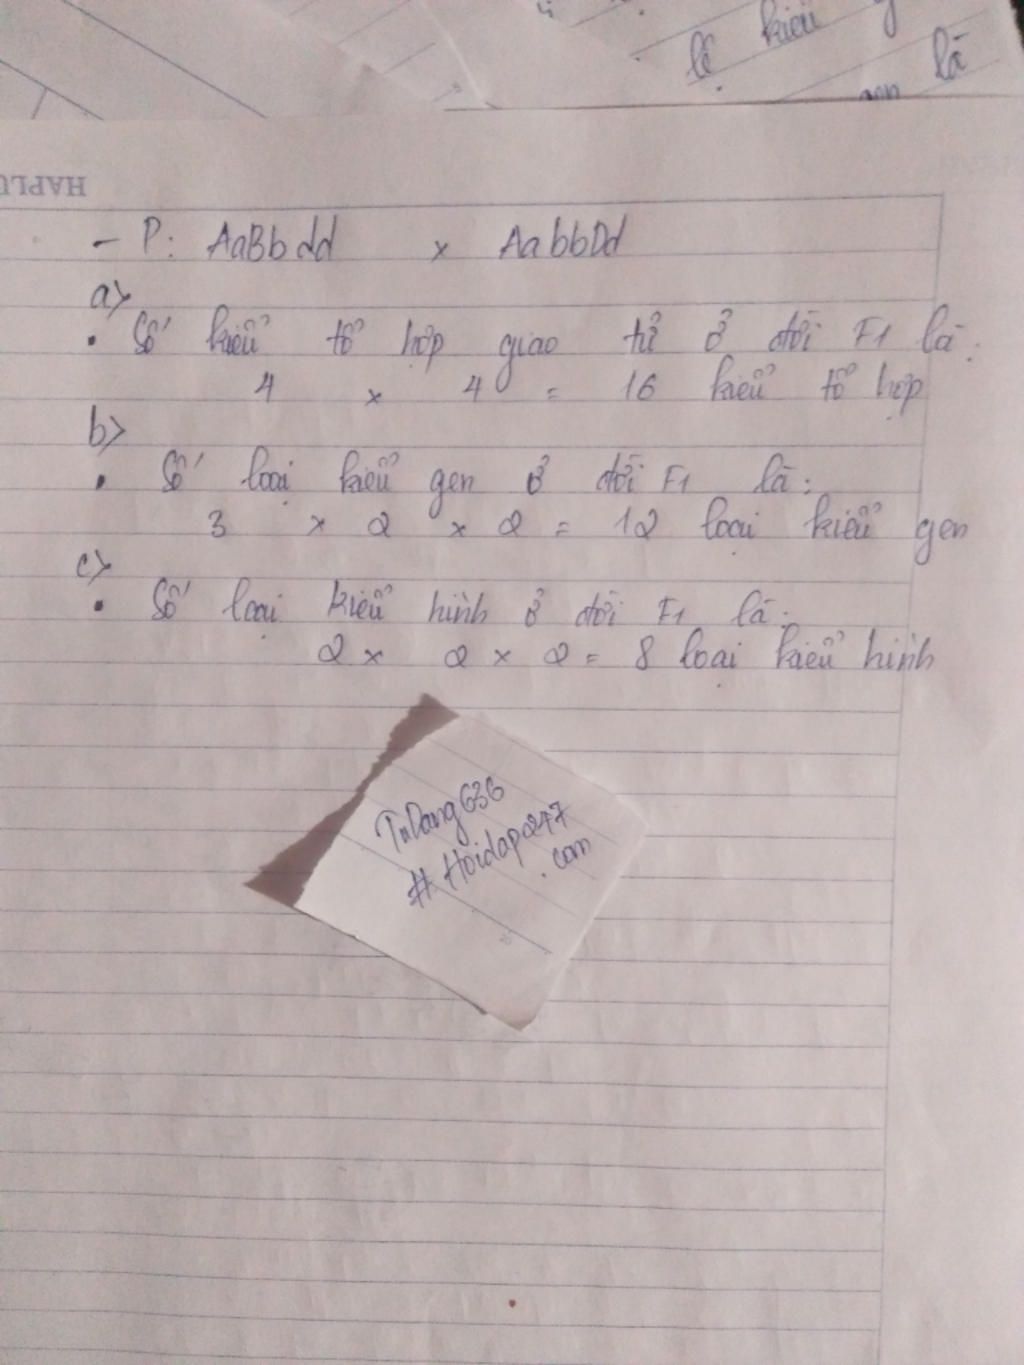 lệ kiểu g
gen là
HAPLU
- P: AaBbdd x AabbDd
a>
• Số kiểu tổ hợp giao tử ở đời F1 là:
4 x 4 = 16 kiểu tổ hợp
b>
• Số loại kiểu gen ở đời F1 là:
3 x 2 x 2 = 12 loại kiểu gen
c>
• Số loại kiểu hình ở đời F1 là:
2 x 2 x 2 = 8 loại kiểu hình
TuDang636
# Hoidap247
.com